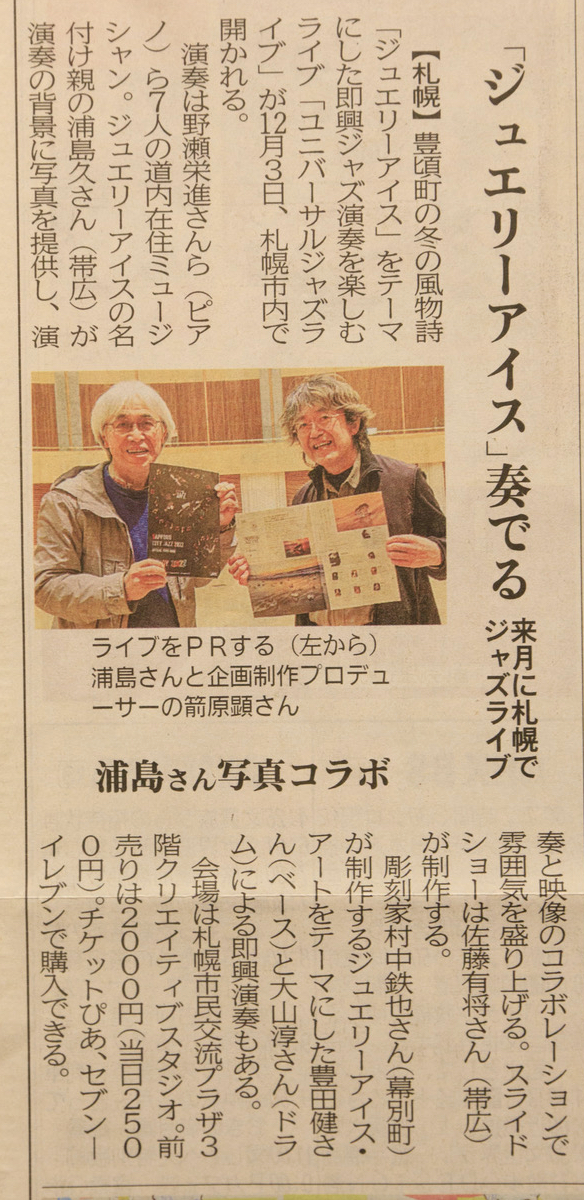 「ジュエリーアイス」奏でる
来月に札幌で
ジャズライブ
【札幌】豊頃町の冬の風物詩
「ジュエリーアイス」をテーマ
にした即興ジャズ演奏を楽しむ
ライブ「ユニバーサルジャズラ
イブ」が12月3日、札幌市内で
開かれる。
演奏は野瀬栄進さんら（ピア
ノ）ら7人の道内在住ミュージ
シャン。ジュエリーアイスの名
付け親の浦島久さん（帯広）が
演奏の背景に写真を提供し、演
ライブをＰＲする（左から）
浦島さんと企画制作プロデュ
ーサーの箭原顕さん
浦島さん写真コラボ
奏と映像のコラボレーションで
雰囲気を盛り上げる。スライド
ショーは佐藤有将さん（帯広）
が制作する。
彫刻家村中鉄也さん（幕別町）
が制作するジュエリーアイス・
アートをテーマにした豊田健さ
ん（ベース）と大山淳さん（ドラ
ム）による即興演奏もある。
会場は札幌市民交流プラザ3
階クリエイティブスタジオ。前
売りは2000円（当日250
0円）。チケットぴあ、セブン―
イレブンで購入できる。
SAPPORO
CITY JAZZ 2022